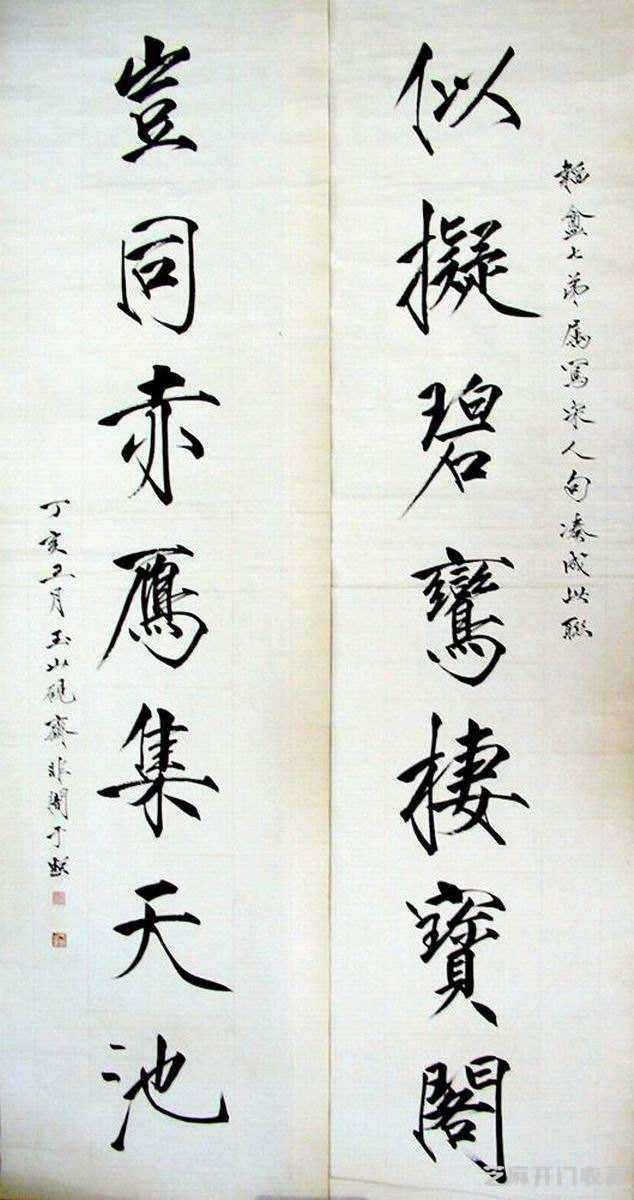 盦七弟屬寫宋人句湊成此聯
似擬碧鸞棲寶閣
豈同赤鴈集天池
丁亥五月玉山硯齋非闇于照
芝麻开门收藏